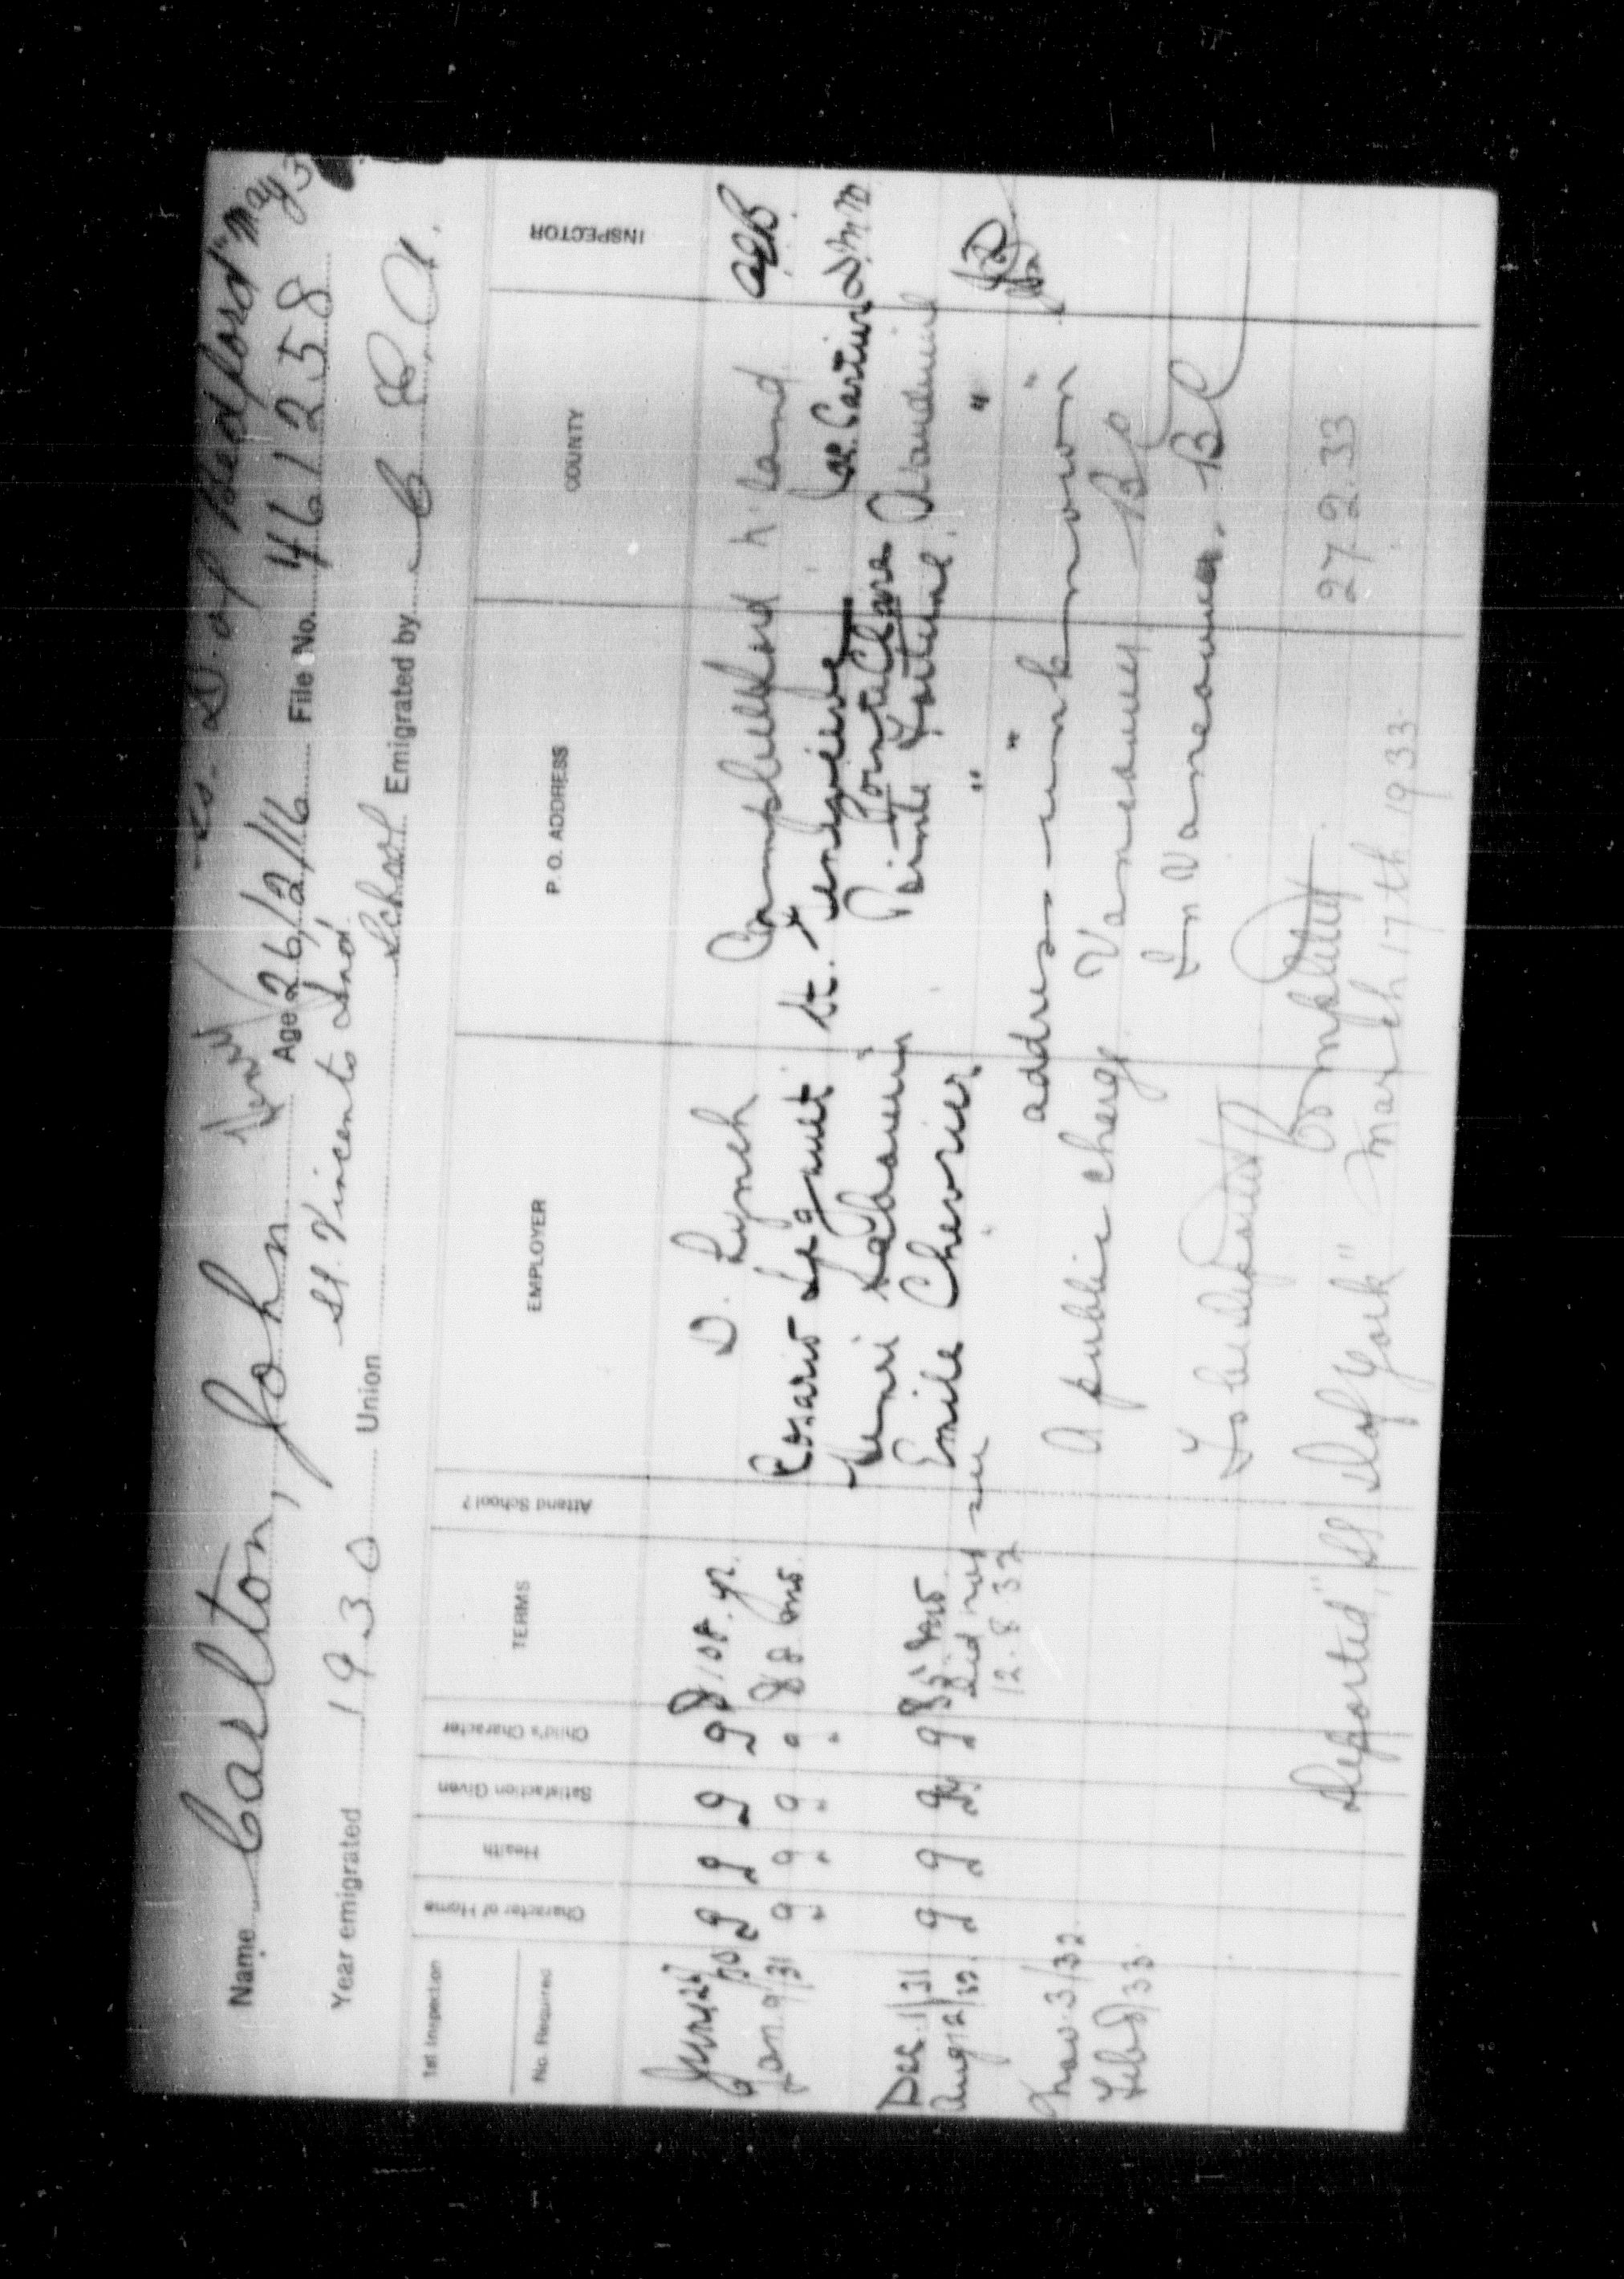 D. of Bedford" May 3
Name Carlton, John
Age 26/2/16 File No. 461258
Year emigrated 1930 Union St. Vincents Ind School Emigrated by C E A.
1st Inspection
No. Required
Character of Home
Health
Satisfaction Given
Child's Character
TERMS
Attend School?
EMPLOYER
P. O. ADDRESS
COUNTY
INSPECTOR
June 24/30 g g g g $10 p. yr. D. Lynch Campbellford N'land
Jan. 9/31 g g g Rosario Legault St. Genevieve Jac. Cartier
Henri Pointe Claire
Dec. 1/31 g g g g $5 mo. Emile Chevrier Pointe Fortune Vaudreuil
Aug 12/32. g g Did not see " " "
12.8.32
Nov 3/32. address unknown
Feb 8/33. A public charge Vancouver B C
In Vancouver, B C
To be deported
Completed 27 2.33
Deported, SS D of York" March 17th 1933.